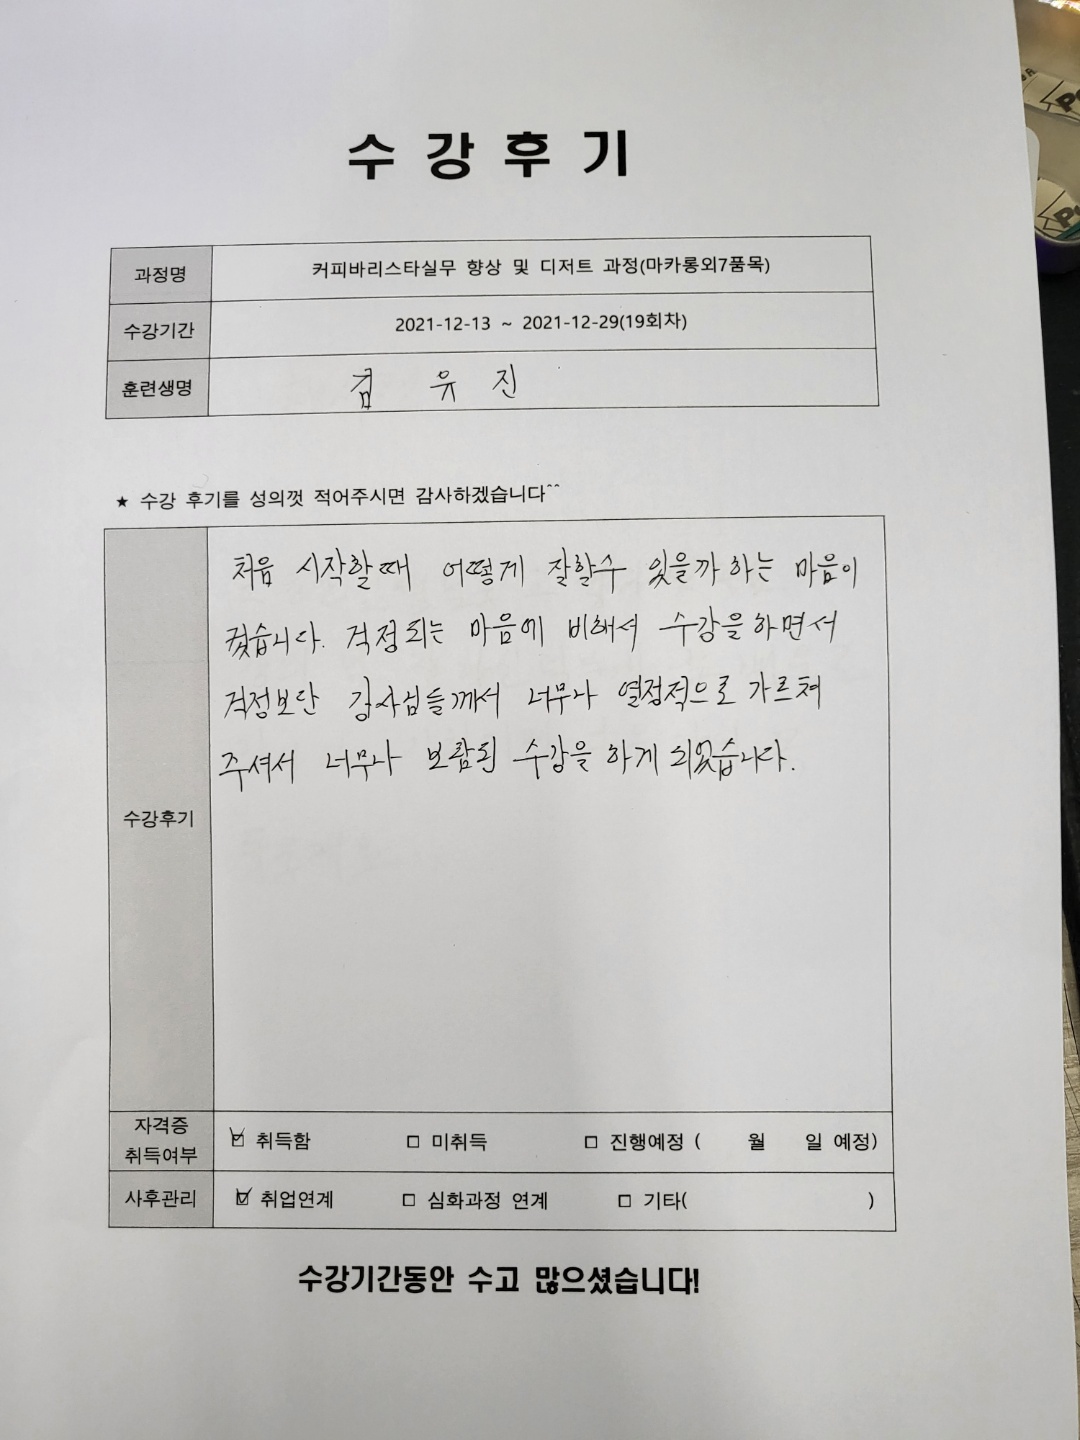 수 강 후 기
과정명 커피바리스타실무 향상 및 디저트 과정(마카롱외7품목)
수강기간 2021-12-13 ~ 2021-12-29(19회차)
훈련생명 김 유 진
★ 수강 후기를 성의껏 적어주시면 감사하겠습니다^^
처음 시작할때 어떻게 잘할수 있을까 하는 마음이
컸습니다. 걱정되는 마음에 비해서 수강을 하면서
걱정보단 강사님들께서 너무나 열정적으로 가르쳐
주셔서 너무나 보람된 수강을 하게 되었습니다.
수강후기
자격증
취득여부
☑ 취득함 □ 미취득 □ 진행예정 ( 월 일 예정)
사후관리 ☑ 취업연계 □ 심화과정 연계 □ 기타( )
수강기간동안 수고 많으셨습니다!